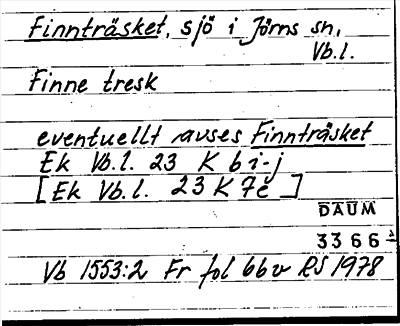 Finnträsket, sjö i Jörns sn,
Vb.l.
Finne tresk
eventuellt avses Finnträsket
Ek Vb.l. 23 K 6 i-j
[Ek Vb.l. 23 K 7e]
DAUM
3366
Vb 1553:2 Fr fol 66v RS 1978